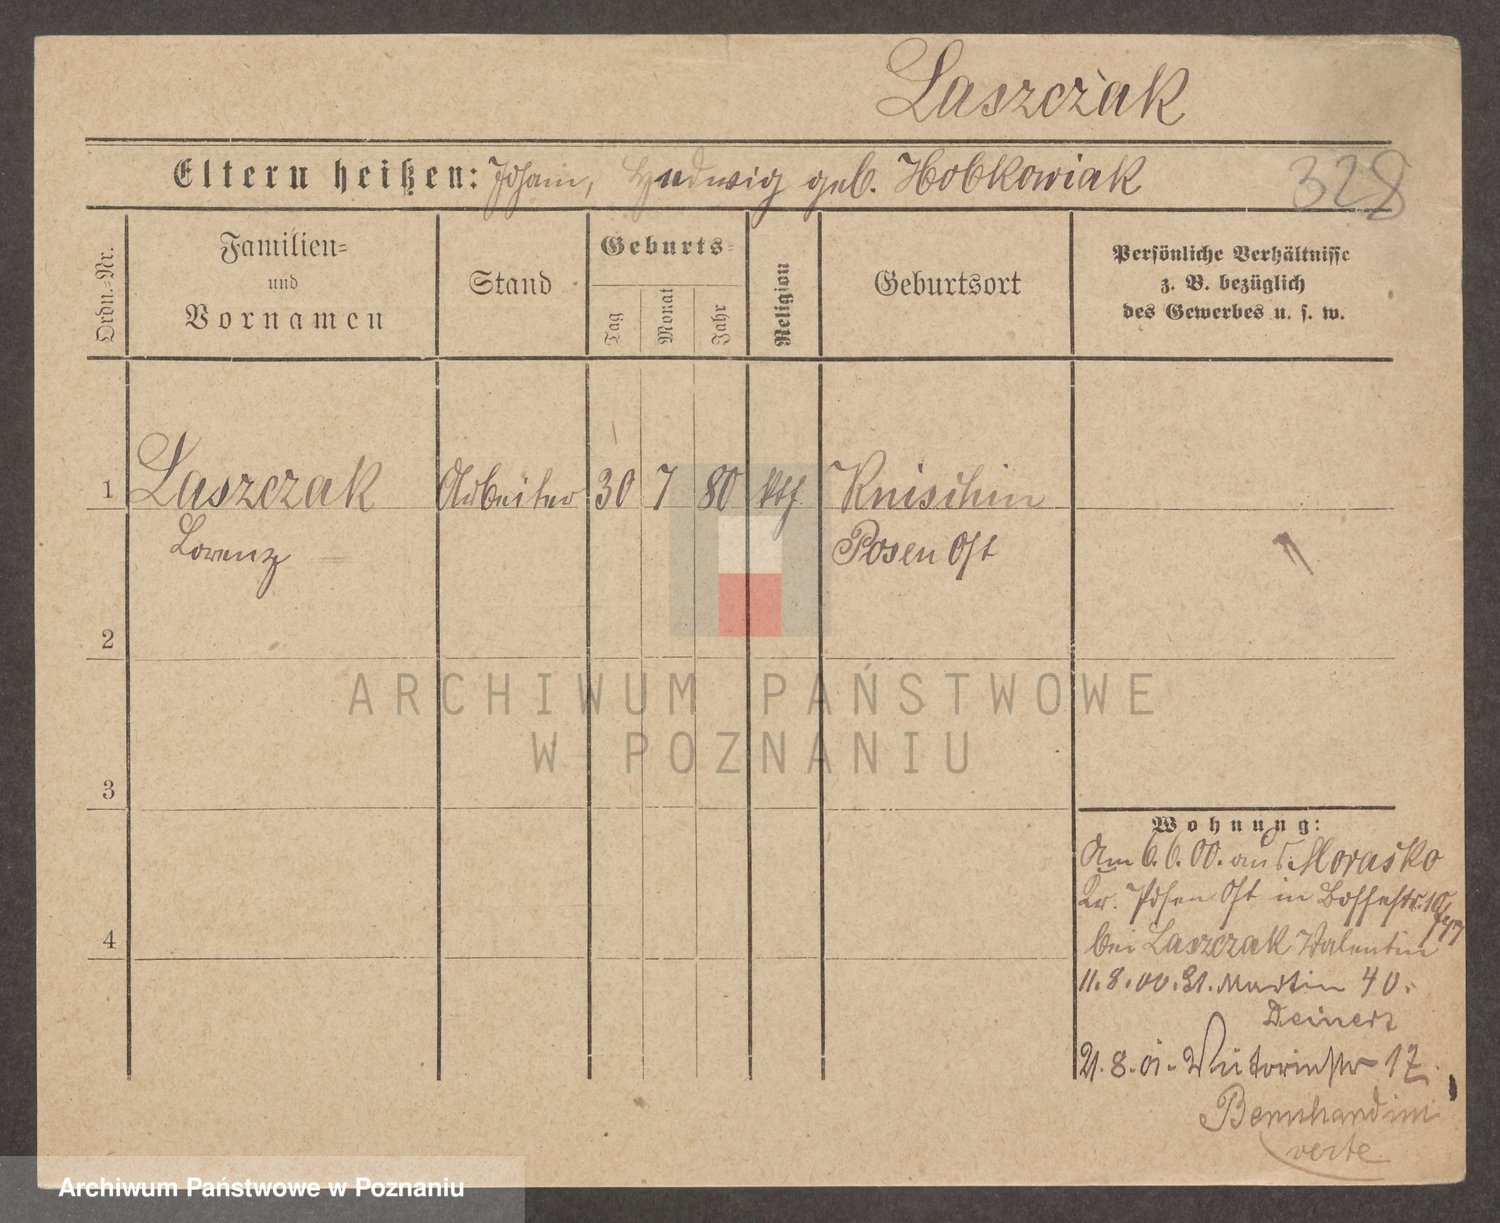 Laszczak
Eltern heißen: Johann, Hedwig geb. Hobkowiak
328
Ordn.-Nr.
Familien-
und
Vornamen
Stand
Geburts-
Tag
Monat
Jahr
Religion
Geburtsort
Persönliche Verhältnisse
z. B. bezüglich
des Gewerbes u. s. w.
1 Laszczak Arbeiter 30 7 80 kth. Knischin
Lorenz Posen Ost
2
3
4
ARCHIWUM PAŃSTWOWE
W POZNANIU
Wohnung:
Am 6.6.00. aus Morasko
Kr. Posen Ost in
bei Laszczak Valentin
11.8.00. St. Martin 40.
Deinert
21.8.01. Victoriastr 17
Bernhardini
verte
Archiwum Państwowe w Poznaniu